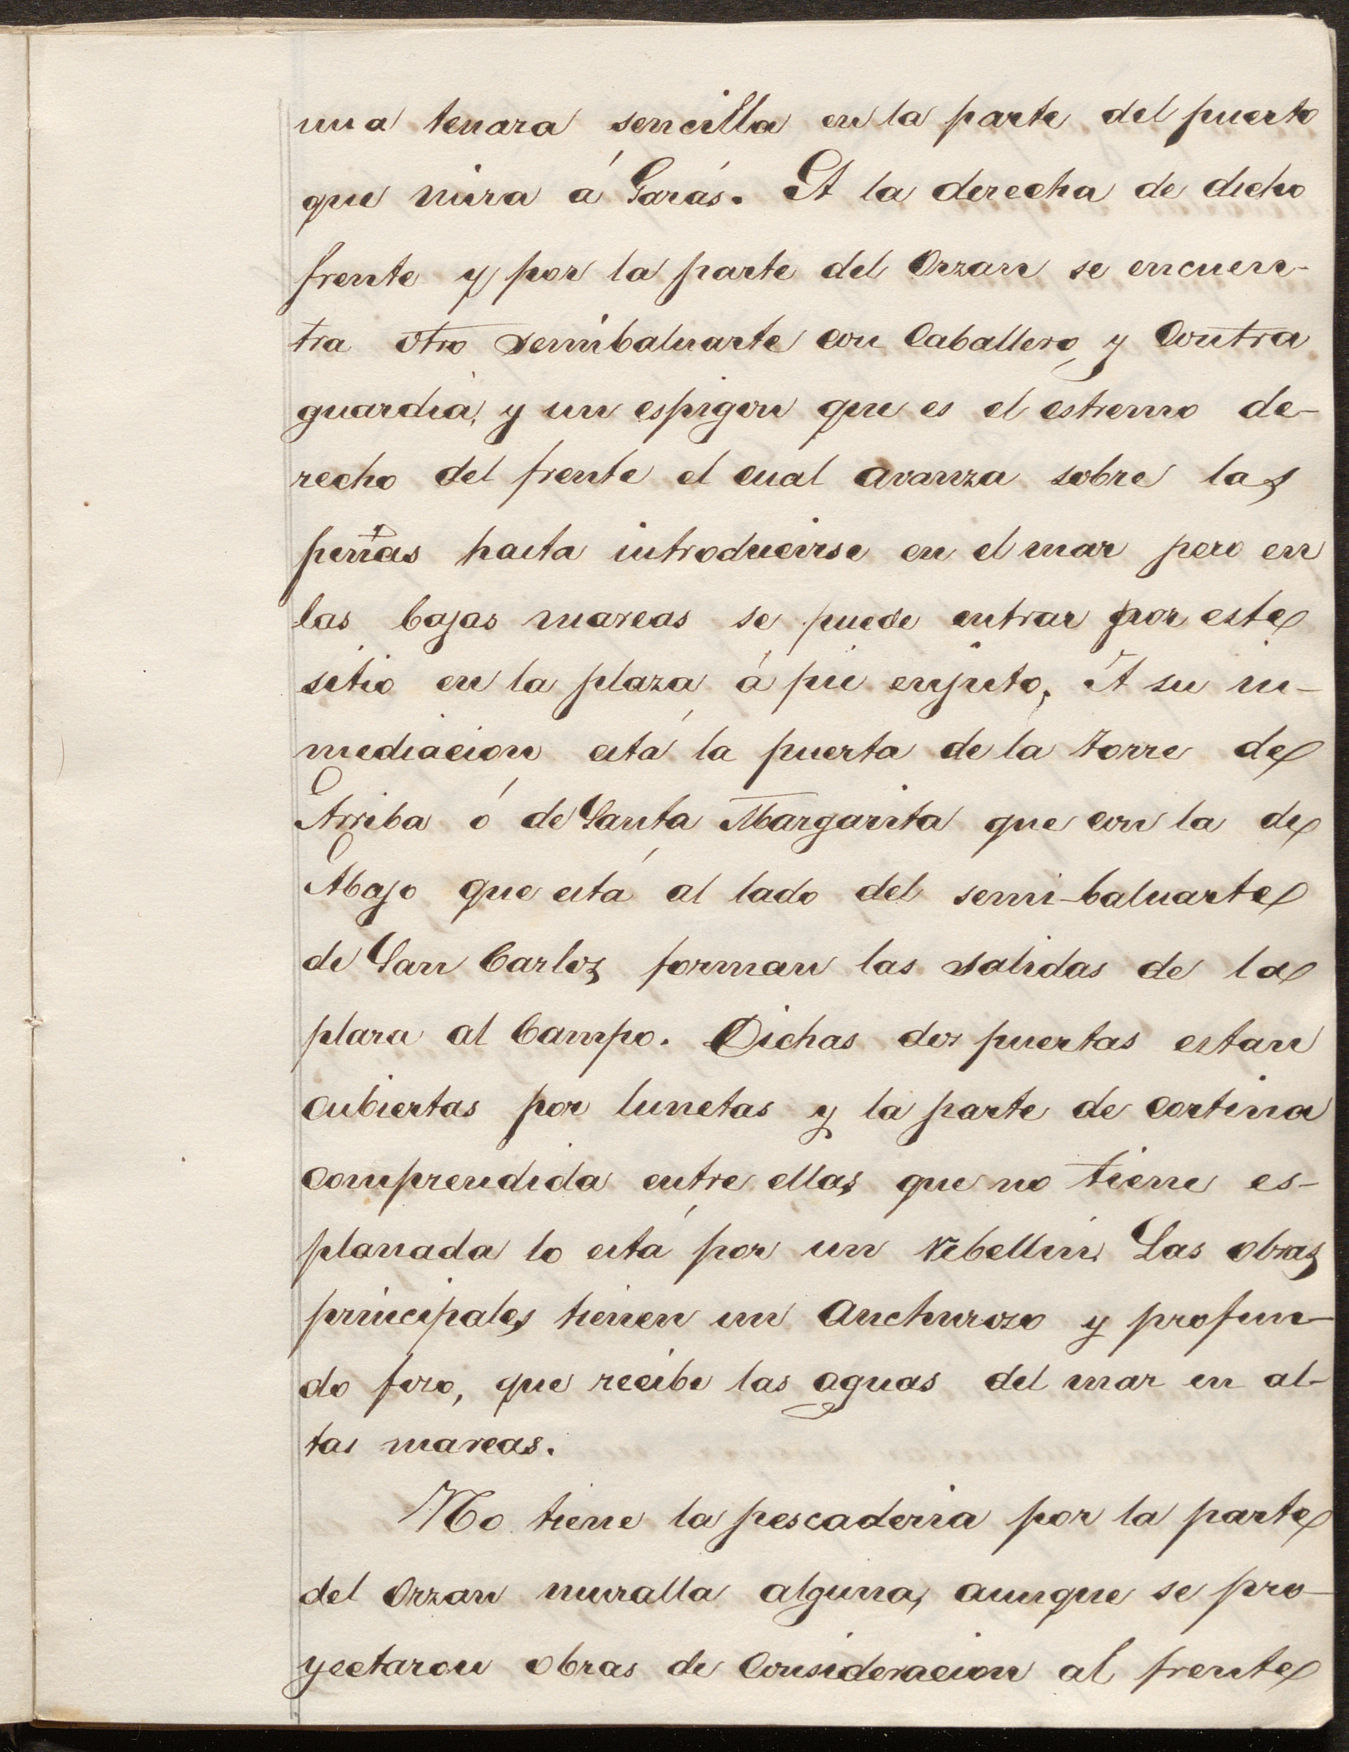 una tenaza sencilla en la parte del puerto
que mira á Garás. A la derecha de dicho
frente y por la parte del Orzan se encuen-
tra otro semibaluarte con Caballero y Contra
guardia, y un espigon que es el estremo de-
recho del frente el cual avanza sobre las
peñas hasta introducirse en el mar pero en
las bajas mareas se puede entrar por este
sitio en la plaza á pie enjuto. A su in-
mediacion está la puerta de la Torre de
Arriba ó de Santa Margarita que con la de
Abajo que está al lado del semi-baluarte
de San Carlos forman las salidas de la
plaza al Campo. Dichas dos puertas estan
cubiertas por lunetas y la parte de cortina
comprendida entre ellas que no tiene es-
planada lo está por un rebellin. Las obras
principales tienen un anchuroso y profun-
do foso, que recibe las aguas del mar en al-
tas mareas.
No tiene la pescaderia por la parte
del Orzan muralla alguna, aunque se pro-
yectaron obras de Consideracion al frente